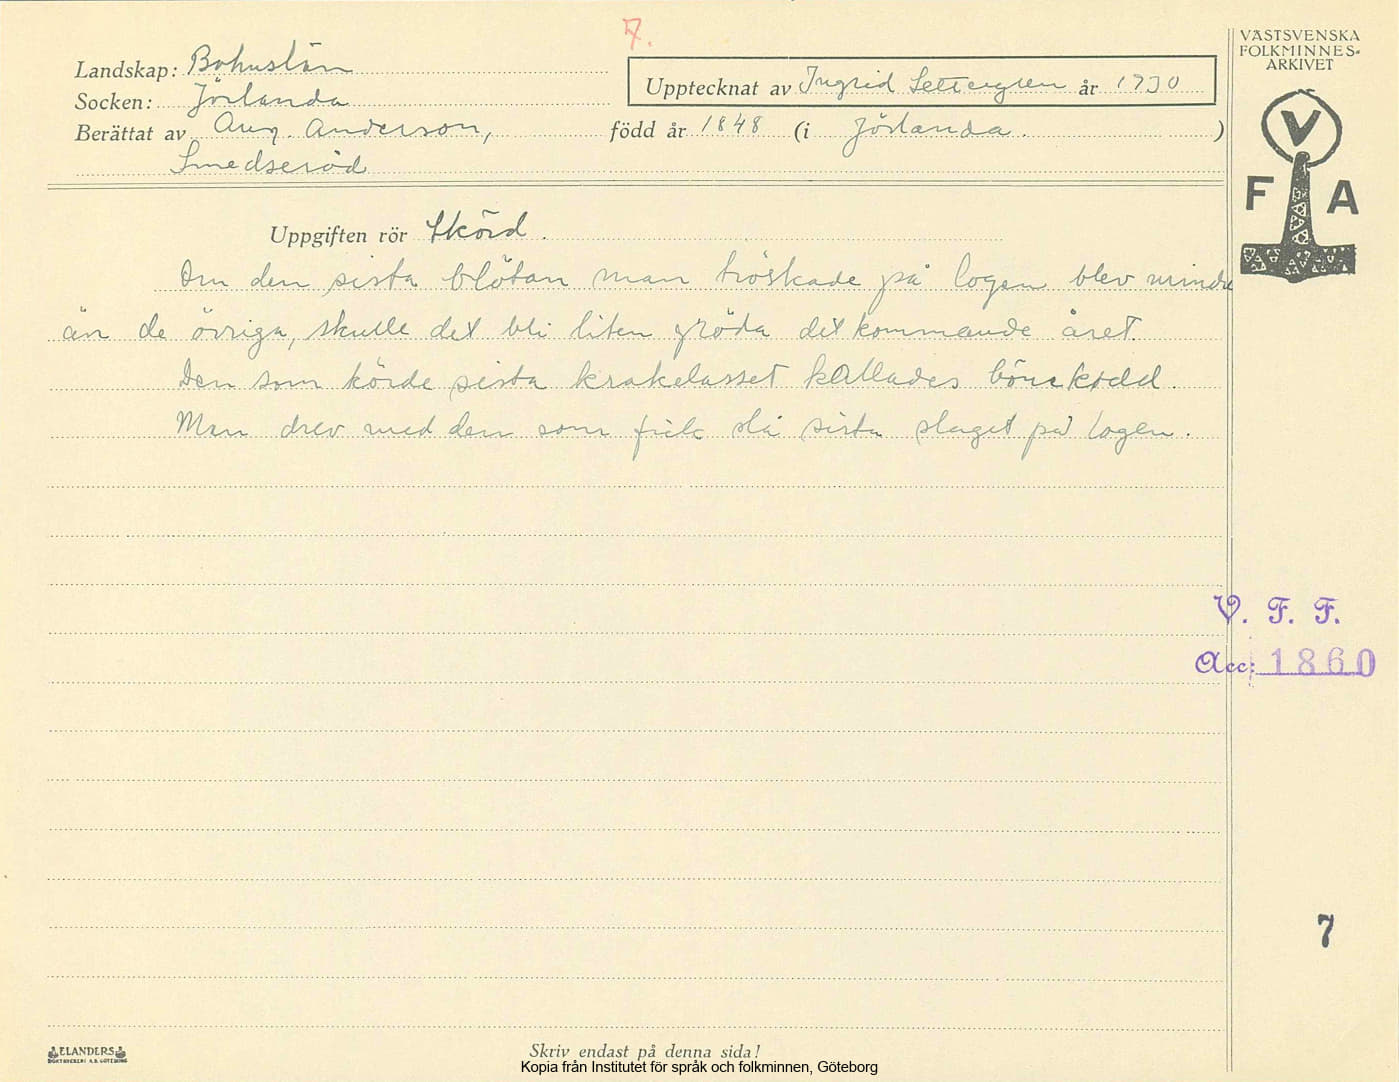 7.
Landskap: Bohuslän
Socken: Jörlanda
Upptecknat av Ingrid Settergren år 1930
Berättat av Aug. Anderson, född år 1848 (i Jörlanda.)
Smedseröd
VÄSTSVENSKA
FOLKMINNES-
ARKIVET
V
F A
Uppgiften rör Skörd.
Om den sista blötan man tröskade på logen blev mindre
än de övriga, skulle det bli liten gröda det kommande året.
Den som körde sista krakelasset kallades
Man drev med den som fick slå sista slaget på logen.
V. F. F.
Acc: 1860
7
ELANDERS
BOKTRYCKERI A.B. GÖTEBORG
Skriv endast på denna sida!
Kopia från Institutet för språk och folkminnen, Göteborg